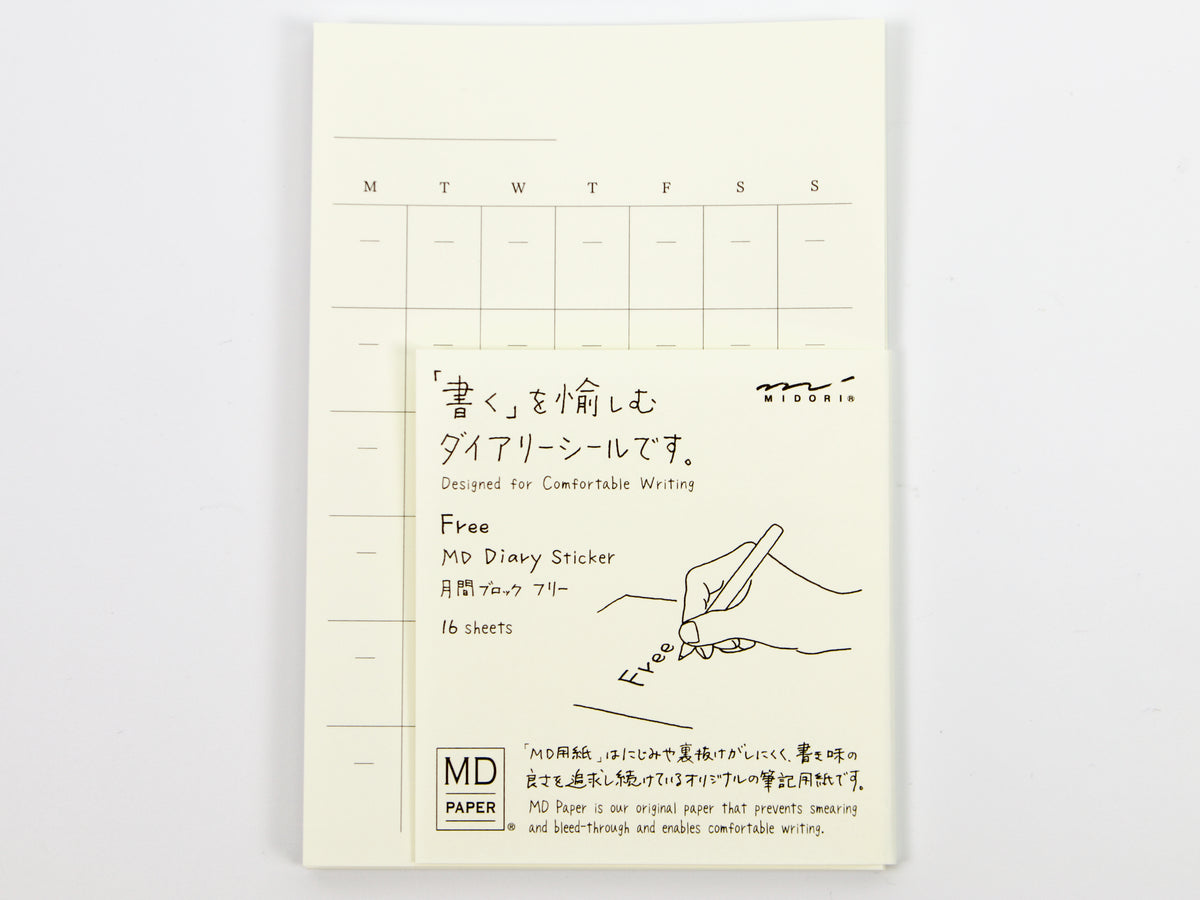 M T W T F S S
「書く」を愉しむ
MIDORI®
ダイアリーシールです。
Designed for Comfortable Writing
Free
MD Diary Sticker
月間ブロック フリー
16 sheets
Free
「MD用紙」はにじみや裏抜けがしにくく、書き味の
良さを追求し続けているオリジナルの筆記用紙です。
MD Paper is our original paper that prevents smearing
and bleed-through and enables comfortable writing.
MD
PAPER
®